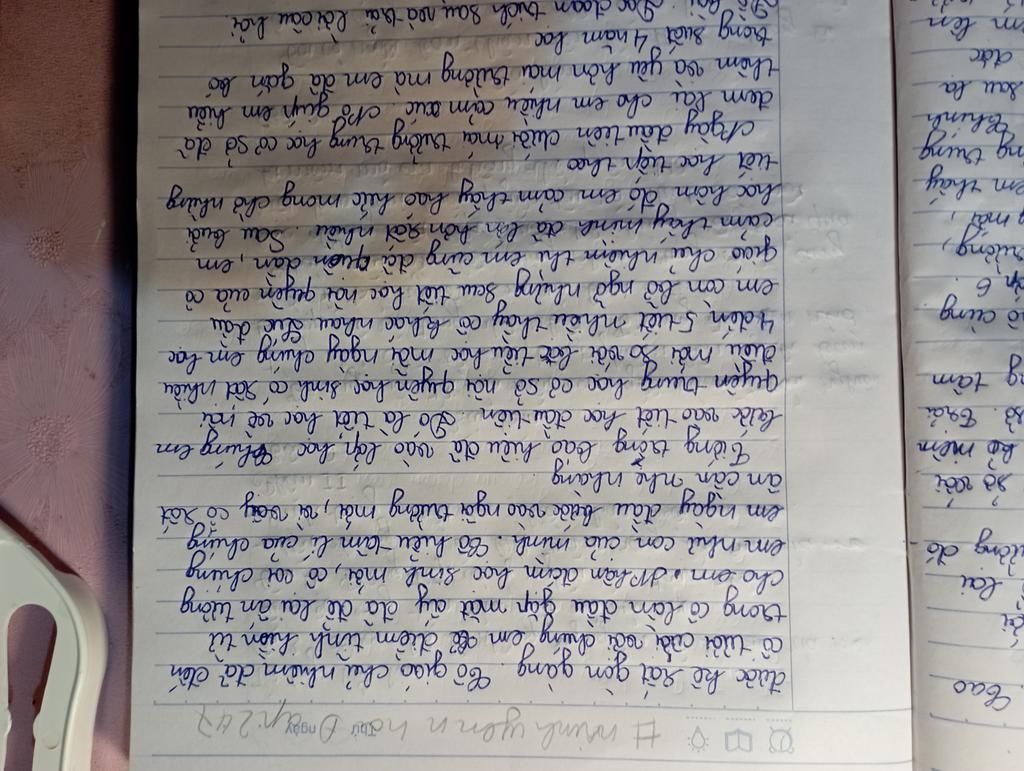 Cao
lại
đường đó
sở với
ng tâm
cùng
6.
trường,
g mới,
em thấy
ng trung
Chính
sau là
lên
Thứ ngày
được kê rất gọn gàng. Cô giáo chủ nhiệm đã đến
cô tươi cười với chúng em điềm tĩnh hiền từ
trong cô lần đầu gặp mặt ấy đã để lại ấn tượng
cho em. Nhận đám học sinh mới, cô coi chúng
em như con của mình. Cô hiểu tâm lí của chúng
em ngày đầu bước vào ngôi trường mới, vì vậy cô rất
ân cần nhẹ nhàng.
Tiếng trống báo hiệu đã vào lớp học chúng em
bước vào tiết học đầu tiên. Đó là tiết học về nội
quyền trung học cơ sở nội quyền học sinh có rất nhiều
điều mới so với bậc tiểu học mỗi ngày chúng em học
4 đến 5 tiết nhiều thầy cô khác nhau. Lúc đầu
em còn bỡ ngỡ nhưng sau tiết học nội quyền của cô
giáo chủ nhiệm thì em cũng đã quen dần, em
cảm thấy mình đã lớn hơn rất nhiều. Sau buổi
học hôm đó em cảm thấy háo hức mong chờ những
tiết học tiếp theo
Ngày đầu tiên dưới mái trường trung học cơ sở đã
đem lại cho em nhiều cảm xúc. Nó giúp em hiểu
thêm và yêu hơn mái trường mà em đã gắn bó
trong suốt 4 năm học
Đề bài: Đọc đoạn trích sau và trả lời câu hỏi.